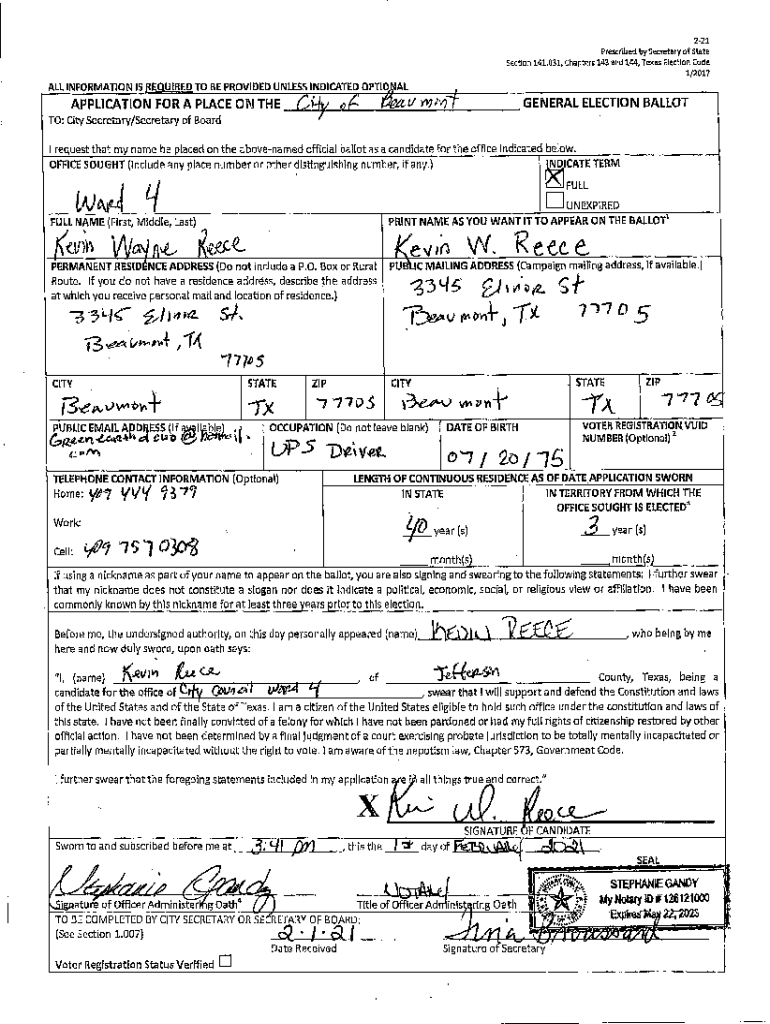 2-21
Prescribed by Secretary of State
Section 141.031, Chapters 143 and 144, Texas Election Code
1/2017
ALL INFORMATION IS REQUIRED TO BE PROVIDED UNLESS INDICATED OPTIONAL
APPLICATION FOR A PLACE ON THE City of Beaumont GENERAL ELECTION BALLOT
TO: City Secretary/Secretary of Board
I request that my name be placed on the above-named official ballot as a candidate for the office indicated below.
OFFICE SOUGHT (Include any place number or other distinguishing number, if any.) INDICATE TERM
Ward 4 X FULL
UNEXPIRED
FULL NAME (First, Middle, Last) PRINT NAME AS YOU WANT IT TO APPEAR ON THE BALLOT¹
Kevin Wayne Reece Kevin W. Reece
PERMANENT RESIDENCE ADDRESS (Do not include a P.O. Box or Rural PUBLIC MAILING ADDRESS (Campaign mailing address, if available.)
Route. If you do not have a residence address, describe the address 3345 Elinor St
at which you receive personal mail and location of residence.) Beaumont, TX 77705
3345 Elinor St.
Beaumont, TX
77705
CITY STATE ZIP CITY STATE ZIP
Beaumont TX 77705 Beaumont TX 77705
PUBLIC EMAIL ADDRESS (If available) OCCUPATION (Do not leave blank) DATE OF BIRTH VOTER REGISTRATION VUID
NUMBER (Optional) ²
.com UPS Driver 07/20/75
TELEPHONE CONTACT INFORMATION (Optional) LENGTH OF CONTINUOUS RESIDENCE AS OF DATE APPLICATION SWORN
Home: 409 444 9379 IN STATE IN TERRITORY FROM WHICH THE
OFFICE SOUGHT IS ELECTED³
Work: 40 year (s) 3 year (s)
Cell: 409 757 0308
month(s) month(s)
If using a nickname as part of your name to appear on the ballot, you are also signing and swearing to the following statements: I further swear
that my nickname does not constitute a slogan nor does it indicate a political, economic, social, or religious view or affiliation. I have been
commonly known by this nickname for at least three years prior to this election.
Before me, the undersigned authority, on this day personally appeared (name) KEVIN REECE, who being by me
here and now duly sworn, upon oath says:
"I, (name) Kevin Reece, of Jefferson County, Texas, being a
candidate for the office of City Council Ward 4, swear that I will support and defend the Constitution and laws
of the United States and of the State of Texas. I am a citizen of the United States eligible to hold such office under the constitution and laws of
this state. I have not been finally convicted of a felony for which I have not been pardoned or had my full rights of citizenship restored by other
official action. I have not been determined by a final judgment of a court exercising probate jurisdiction to be totally mentally incapacitated or
partially mentally incapacitated without the right to vote. I am aware of the nepotism law, Chapter 573, Government Code.
I further swear that the foregoing statements included in my application are in all things true and correct."
X Kevin W. Reece
SIGNATURE OF CANDIDATE
Sworn to and subscribed before me at 3:41 PM, this the 1st day of FEBRUARY, 2021
SEAL
Stephanie Gandy NOTARY STEPHANIE GANDY
My Notary ID # 126121000
Expires May 22, 2025
Signature of Officer Administering Oath⁴ Title of Officer Administering Oath
TO BE COMPLETED BY CITY SECRETARY OR SECRETARY OF BOARD:
(See Section 1.007) 2-1-21 Tina Broussard
Date Received Signature of Secretary
Voter Registration Status Verified